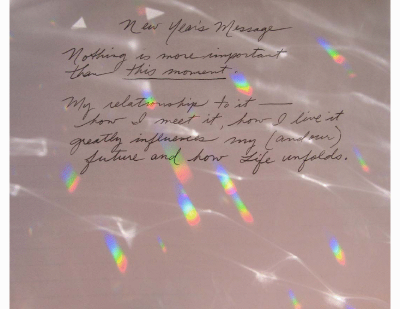 New Year's Message
Nothing is more important
than this moment.
My relationship to it —
how I meet it, how I live it
greatly influences my (and our)
future and how Life unfolds.